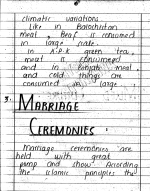 climatic variations.
Like in Balochistan
meat, Beef is consumed
in large rate.
in K.P.K green tea,
meat is consumed
and in Punjab meat
and cold things are
consumed in large
MARRIAGE
CEREMONIES:
Marriage ceremonies are
held with great
pump and show. According
the islamic principles the